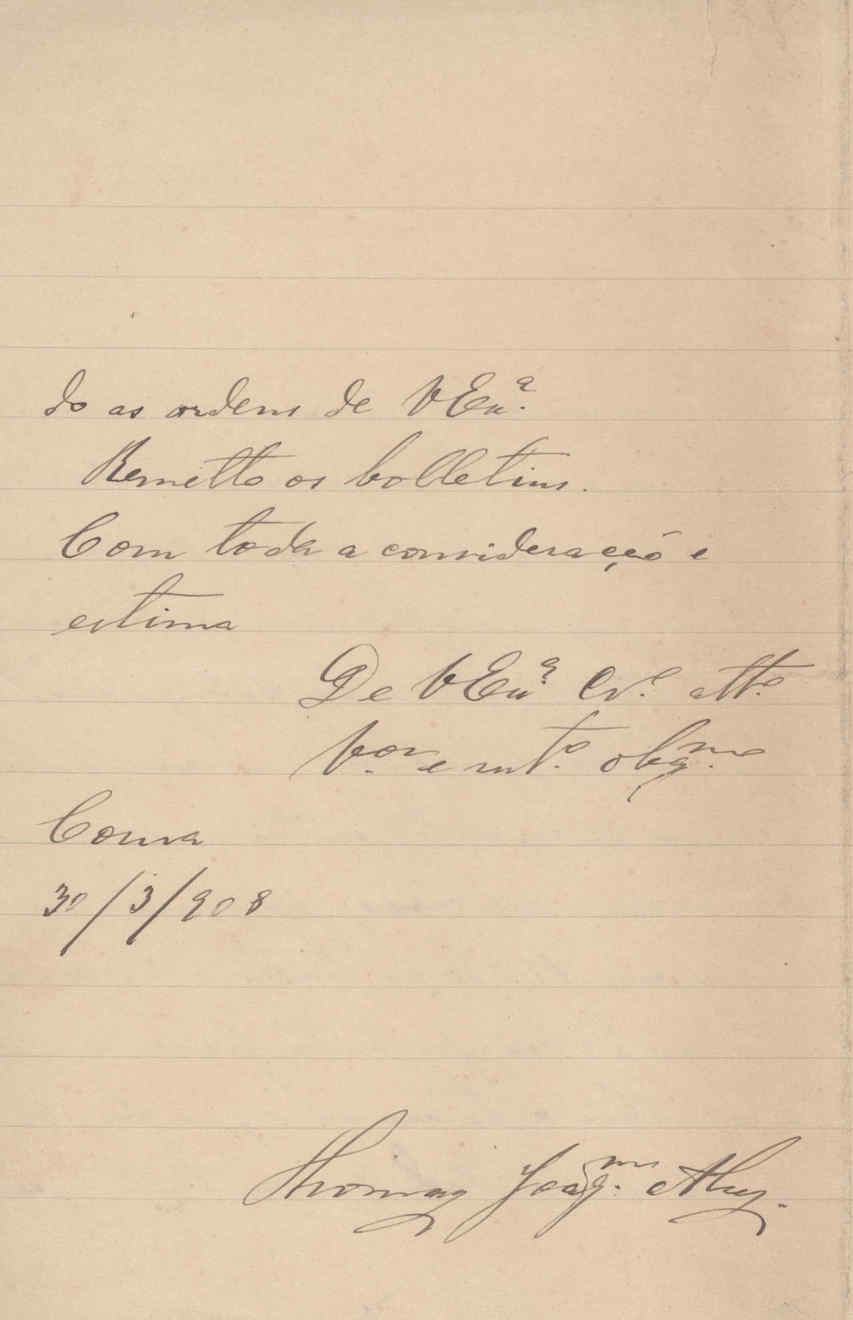 do as ordens de V Exª.
Remetto os bolletins.
Com toda a consideração e
estima
De V Exª Crº. attº.
Vor. e mtº. obgmo.
Coura
30/3/908
Thomaz Joaqm.